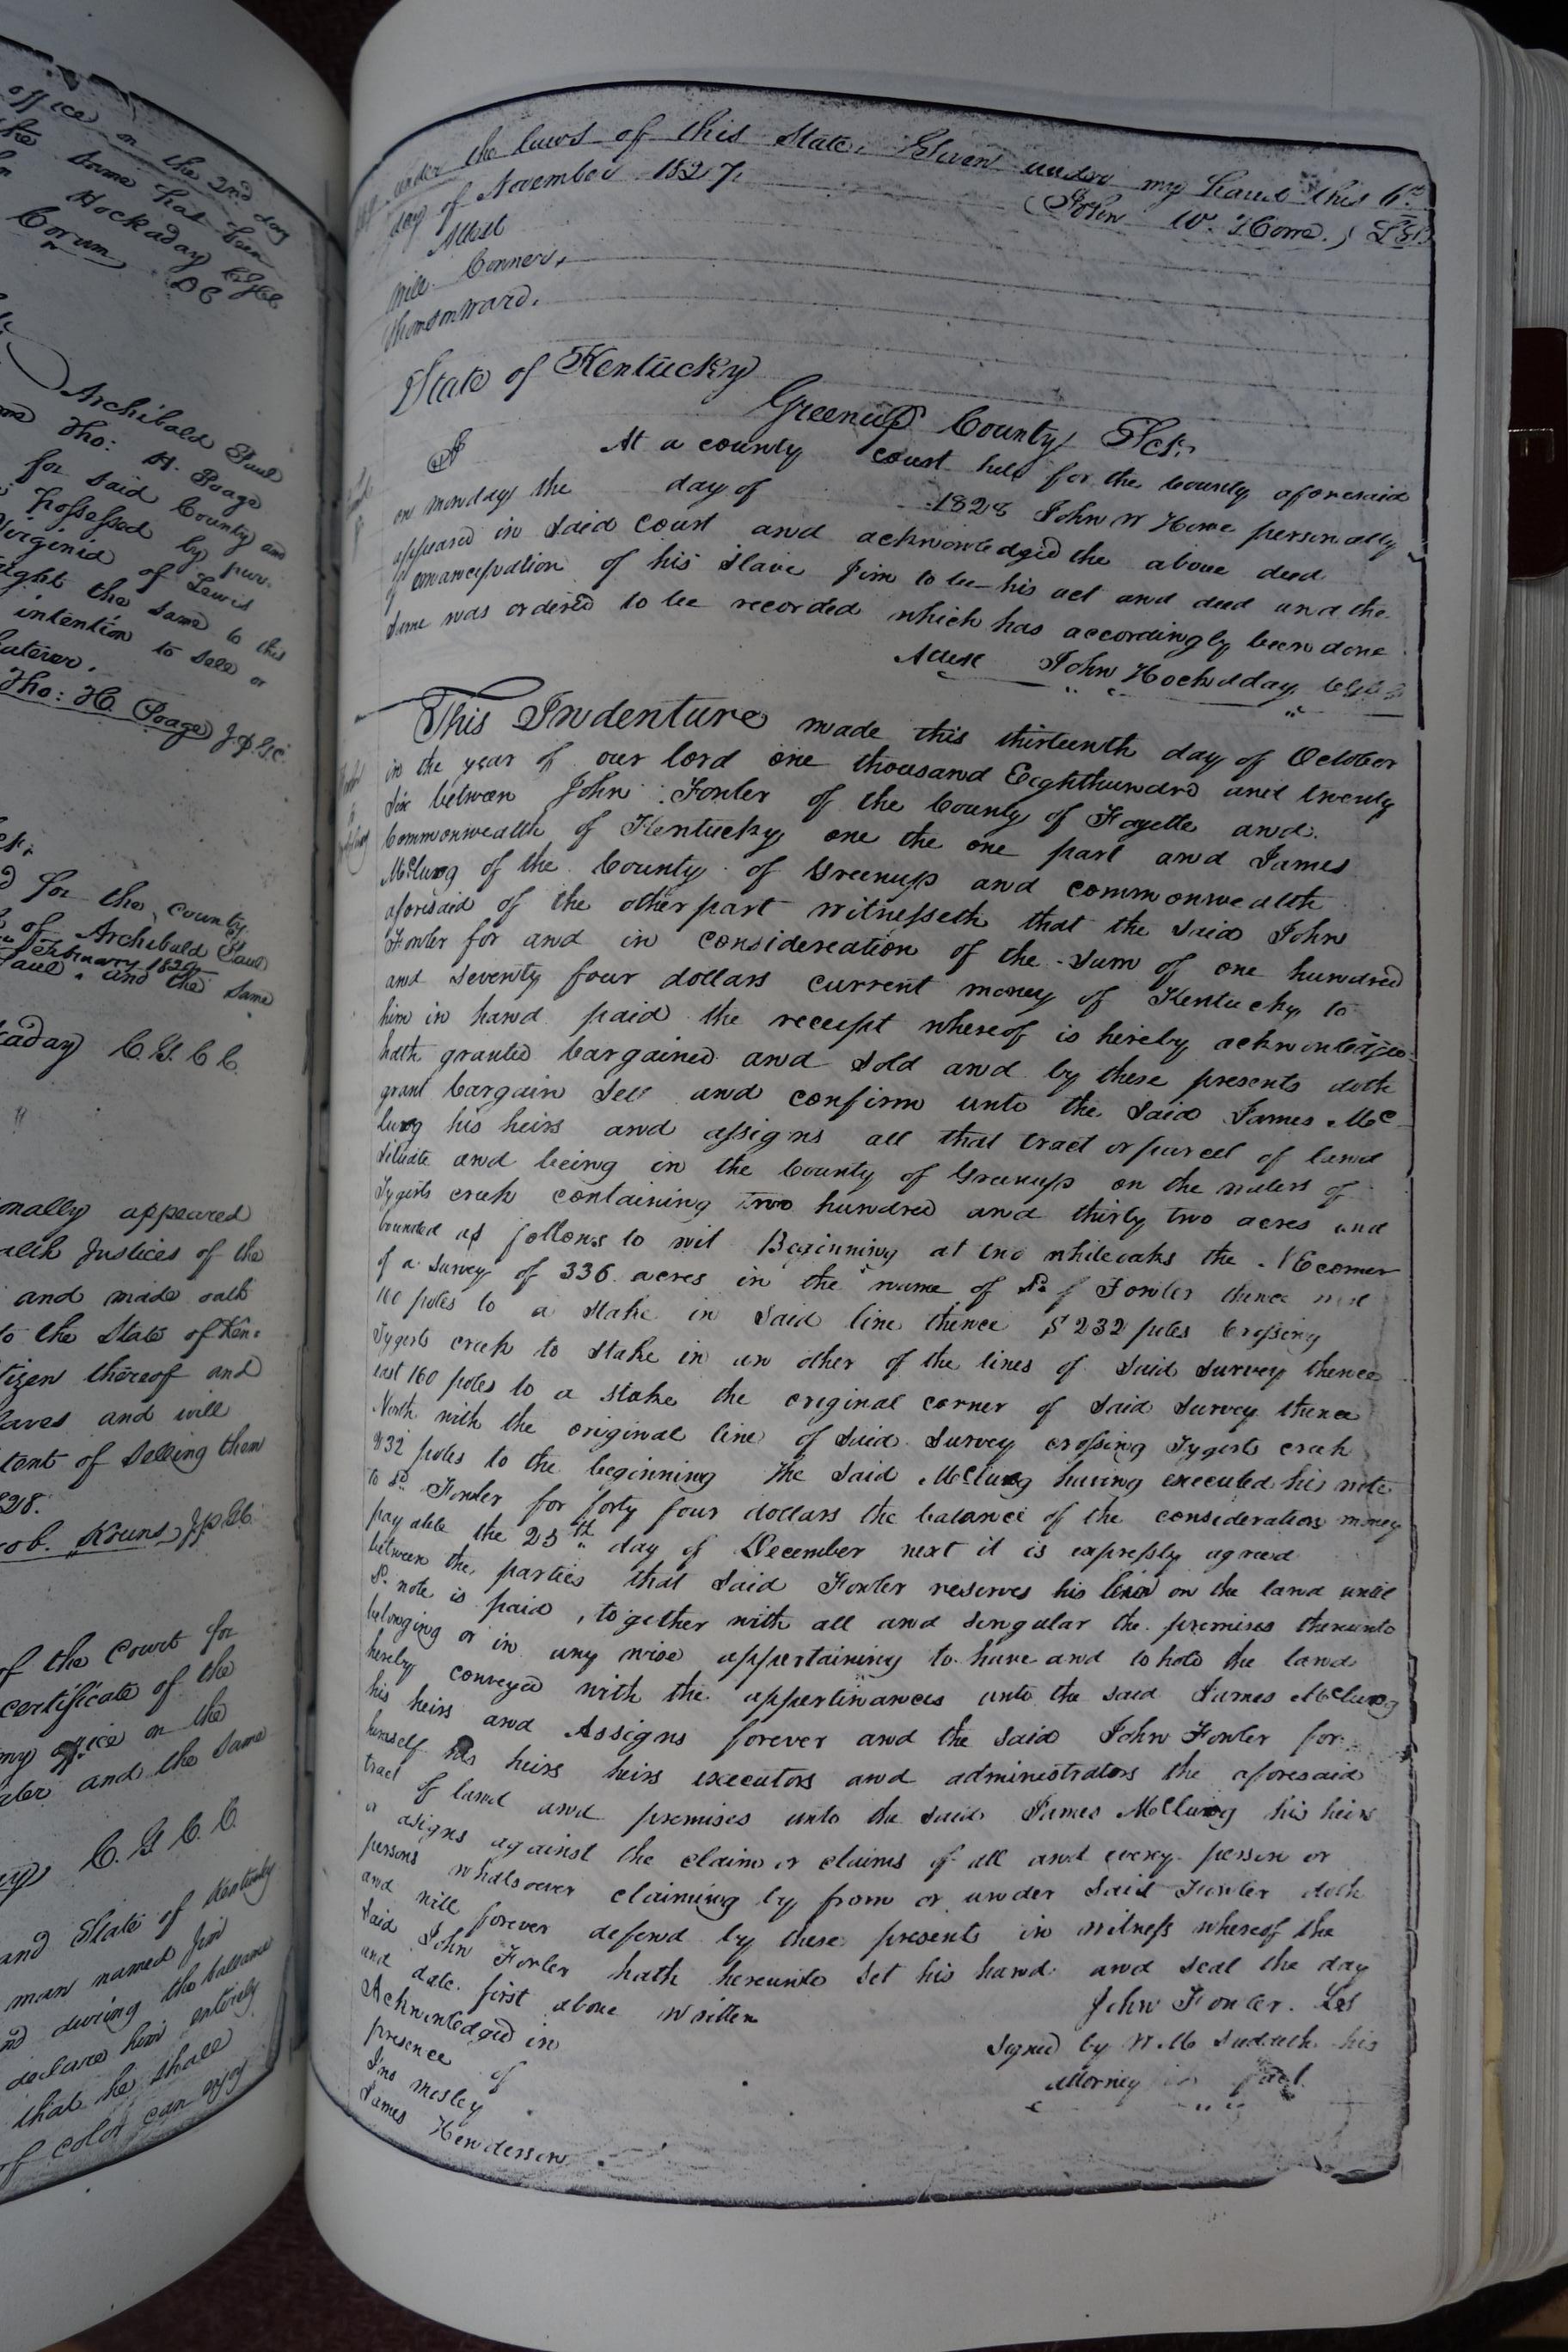 office on the 2nd day
the same has been
Hockaday
Corum DC
Archibald Paul
Tho: H. Poage
for said County and
possessed by pur-
Virginia of Lewis
the same to this
intention to sell or
Tho: H. Poage J.P.G.C.
for the county
of Archibald Paul
February 182
Paul and the same
C. G. C. C.
onally appeared
Justices of the
and made oath
to the State of Ken:
tizen thereof and
laves and will
tent of selling them
828.
ob. Kouns J.P.G.C.
of the Court for
certificate of the
my office on the
and the same
C. G. C. C.
and State of Kentucky
man named Jim
nd during the ballance
declare him entirely
that he shall
of color can enjoy
under the laws of this State. Given under my hand this 6th
day of November 1827.
(John W. Howe.) LS
Attest
Will. Conner,
Thomson Ward.
State of Kentucky
Greenup County Sct.
At a county court held for the County aforesaid
on monday the day of 1828 John W Howe personally
appeared in said court and acknowledged the above deed
of emancipation of his slave Jim to be his act and deed and the
same was ordered to be recorded which has accordingly been done
Attest John Hockaday
This Indenture made this thirteenth day of October
in the year of our lord one thousand Eighthundred and twenty
Six between John Fowler of the County of Fayette and
Commonwealth of Kentucky one the one part and James
McClung of the County of Greenup and commonwealth
aforesaid of the other part witnesseth that the said John
Fowler for and in consideration of the sum of one hundred
and seventy four dollars current money of Kentucky to
him in hand paid the receipt whereof is hereby acknowledged
hath granted bargained and sold and by these presents doth
grant bargain sell and confirm unto the said James Mc
lung his heirs and assigns all that tract or parcel of land
situate and being in the County of Greenup on the waters of
Tygerts creek containing two hundred and thirty two acres and
bounded as follows to wit Beginning at two whiteoaks the corner
of a survey of 336 acres in the name of Sd Fowler thence west
160 poles to a stake in said line thence S 232 poles crossing
Tygerts creek to stake in an other of the lines of said survey thence
east 160 poles to a stake the original corner of said survey thence
North with the original line of said survey crossing Tygerts creek
232 poles to the beginning the said McClung having executed his note
to Sd Fowler for forty four dollars the balance of the consideration money
payable the 25th day of December next it is expressly agreed
between the parties that said Fowler reserves his lein on the land until
Sd note is paid, together with all and singular the premises thereunto
belonging or in any wise appertaining to have and to hold the land
hereby conveyed with the appertinances unto the said James McClung
his heirs and Assigns forever and the said John Fowler for
himself his heirs heirs executors and administrators the aforesaid
tract of land and premises unto the said James McClung his heirs
or asigns against the claim or claims of all and every person or
persons whatsoever claiming by from or under said Fowler doth
and will forever defend by these presents in witness whereof the
said John Fowler hath hereunto set his hand and seal the day
and date first above written
John Fowler. Ls
Acknowledged in
Signed by W. M. his
presence of
attorney in fact
Jno Mosley
James Henderson